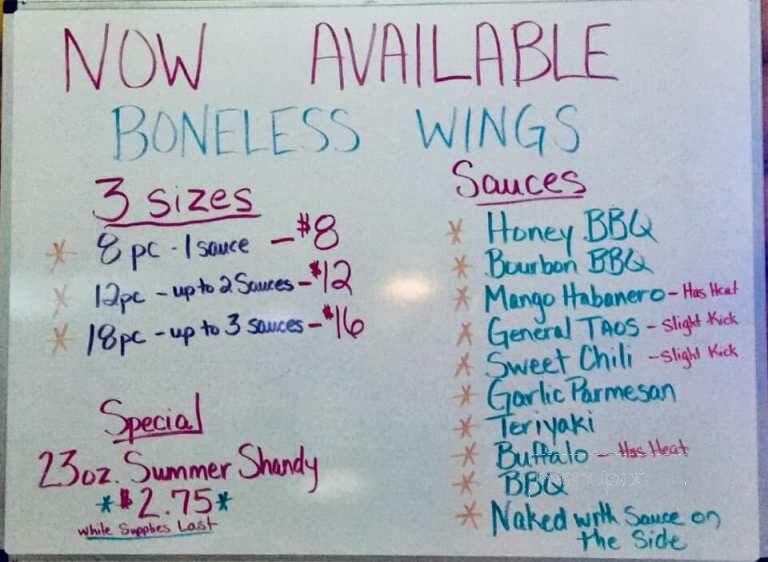 NOW AVAILABLE
BONELESS WINGS
3 sizes
* 8 pc - 1 sauce - $8
* 12pc - up to 2 Sauces - $12
* 18pc - up to 3 sauces - $16
Special
23oz. Summer Shandy
*$2.75*
While Supplies Last
Sauces
* Honey BBQ
* Bourbon BBQ
* Mango Habanero - Has Heat
* General TAOS - Slight Kick
* Sweet Chili - Slight Kick
* Garlic Parmesan
* Teriyaki
* Buffalo - Has Heat
* BBQ
* Naked with Sauce on
the Side